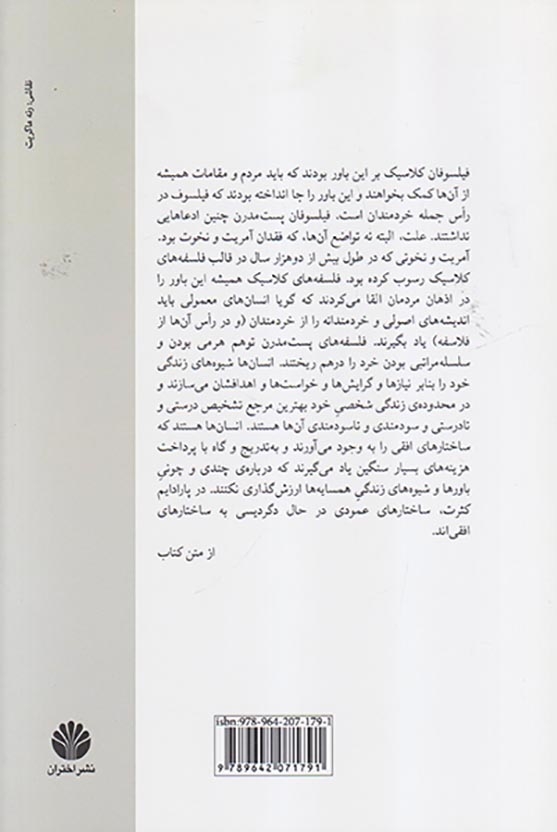 نقاشی: رنه ماگریت
فیلسوفان کلاسیک بر این باور بودند که باید مردم و مقامات همیشه
از آن‌ها کمک بخواهند و این باور را جا انداخته بودند که فیلسوف در
رأس جمله خردمندان است. فیلسوفان پست‌مدرن چنین ادعاهایی
نداشتند. علت، البته نه تواضع آن‌ها، که فقدان آمریت و نخوت بود.
آمریت و نخوتی که در طول بیش از دوهزار سال در قالب فلسفه‌های
کلاسیک رسوب کرده بود. فلسفه‌های کلاسیک همیشه این باور را
در اذهان مردمان القا می‌کردند که گویا انسان‌های معمولی باید
اندیشه‌های اصولی و خردمندانه را از خردمندان (و در رأس آن‌ها از
فلاسفه) یاد بگیرند. فلسفه‌های پست‌مدرن توهم هرمی بودن و
سلسله‌مراتبی بودن خرد را درهم ریختند. انسان‌ها شیوه‌های زندگی
خود را بنابر نیازها و گرایش‌ها و خواست‌ها و اهدافشان می‌سازند و
در محدوده‌ی زندگی شخصیِ خود بهترین مرجع تشخیص درستی و
نادرستی و سودمندی و ناسودمندی آن‌ها هستند. انسان‌ها هستند که
ساختارهای افقی را به وجود می‌آورند و به‌تدریج و گاه با پرداخت
هزینه‌های بسیار سنگین یاد می‌گیرند که درباره‌ی چندی و چونیِ
باورها و شیوه‌های زندگیِ همسایه‌ها ارزش‌گذاری نکنند. در پارادایم
کثرت، ساختارهای عمودی در حال دگردیسی به ساختارهای
افقی‌اند.
از متن کتاب
isbn:978-964-207-179-1
9 789642 071791
نشر اختران